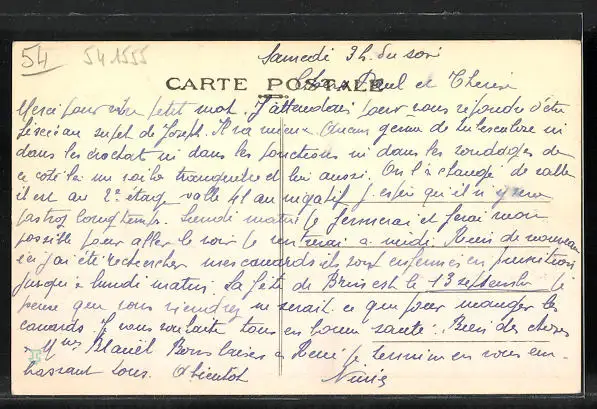 54 541555
Samedi 3h. du soir
CARTE POSTALE
Chers Paul et Thérèse
Merci pour votre petit mot. J'attendais pour vous répondre d'être
fixée au sujet de Joseph. Il va mieux. Aucun germe de tuberculose ni
dans les crachat ni dans les ponctions ni dans les sondages de
ce côté là un voila tranquille et lui aussi. On l'a changé de salle
il est au 2e étage salle 41 au négatif j'espère qu'il n'y sera
pas trop longtemps. Lundi matin je fermerai et ferai mon
possible pour aller le voir je rentrerai a midi. Rien de nouveau
ici j'ai été rechercher mes canards ils sont enfermés en punition
jusqu'à lundi matin. La fête de Brin est le 13 septembre je
pense que vous viendrez ne serait ce que pour manger les
canards. Je vous souhaite tous en bonne santé. Bien des choses
a Mmes Blauël Bons baisers a René je termine en vous em-
brassant tous. A bientôt